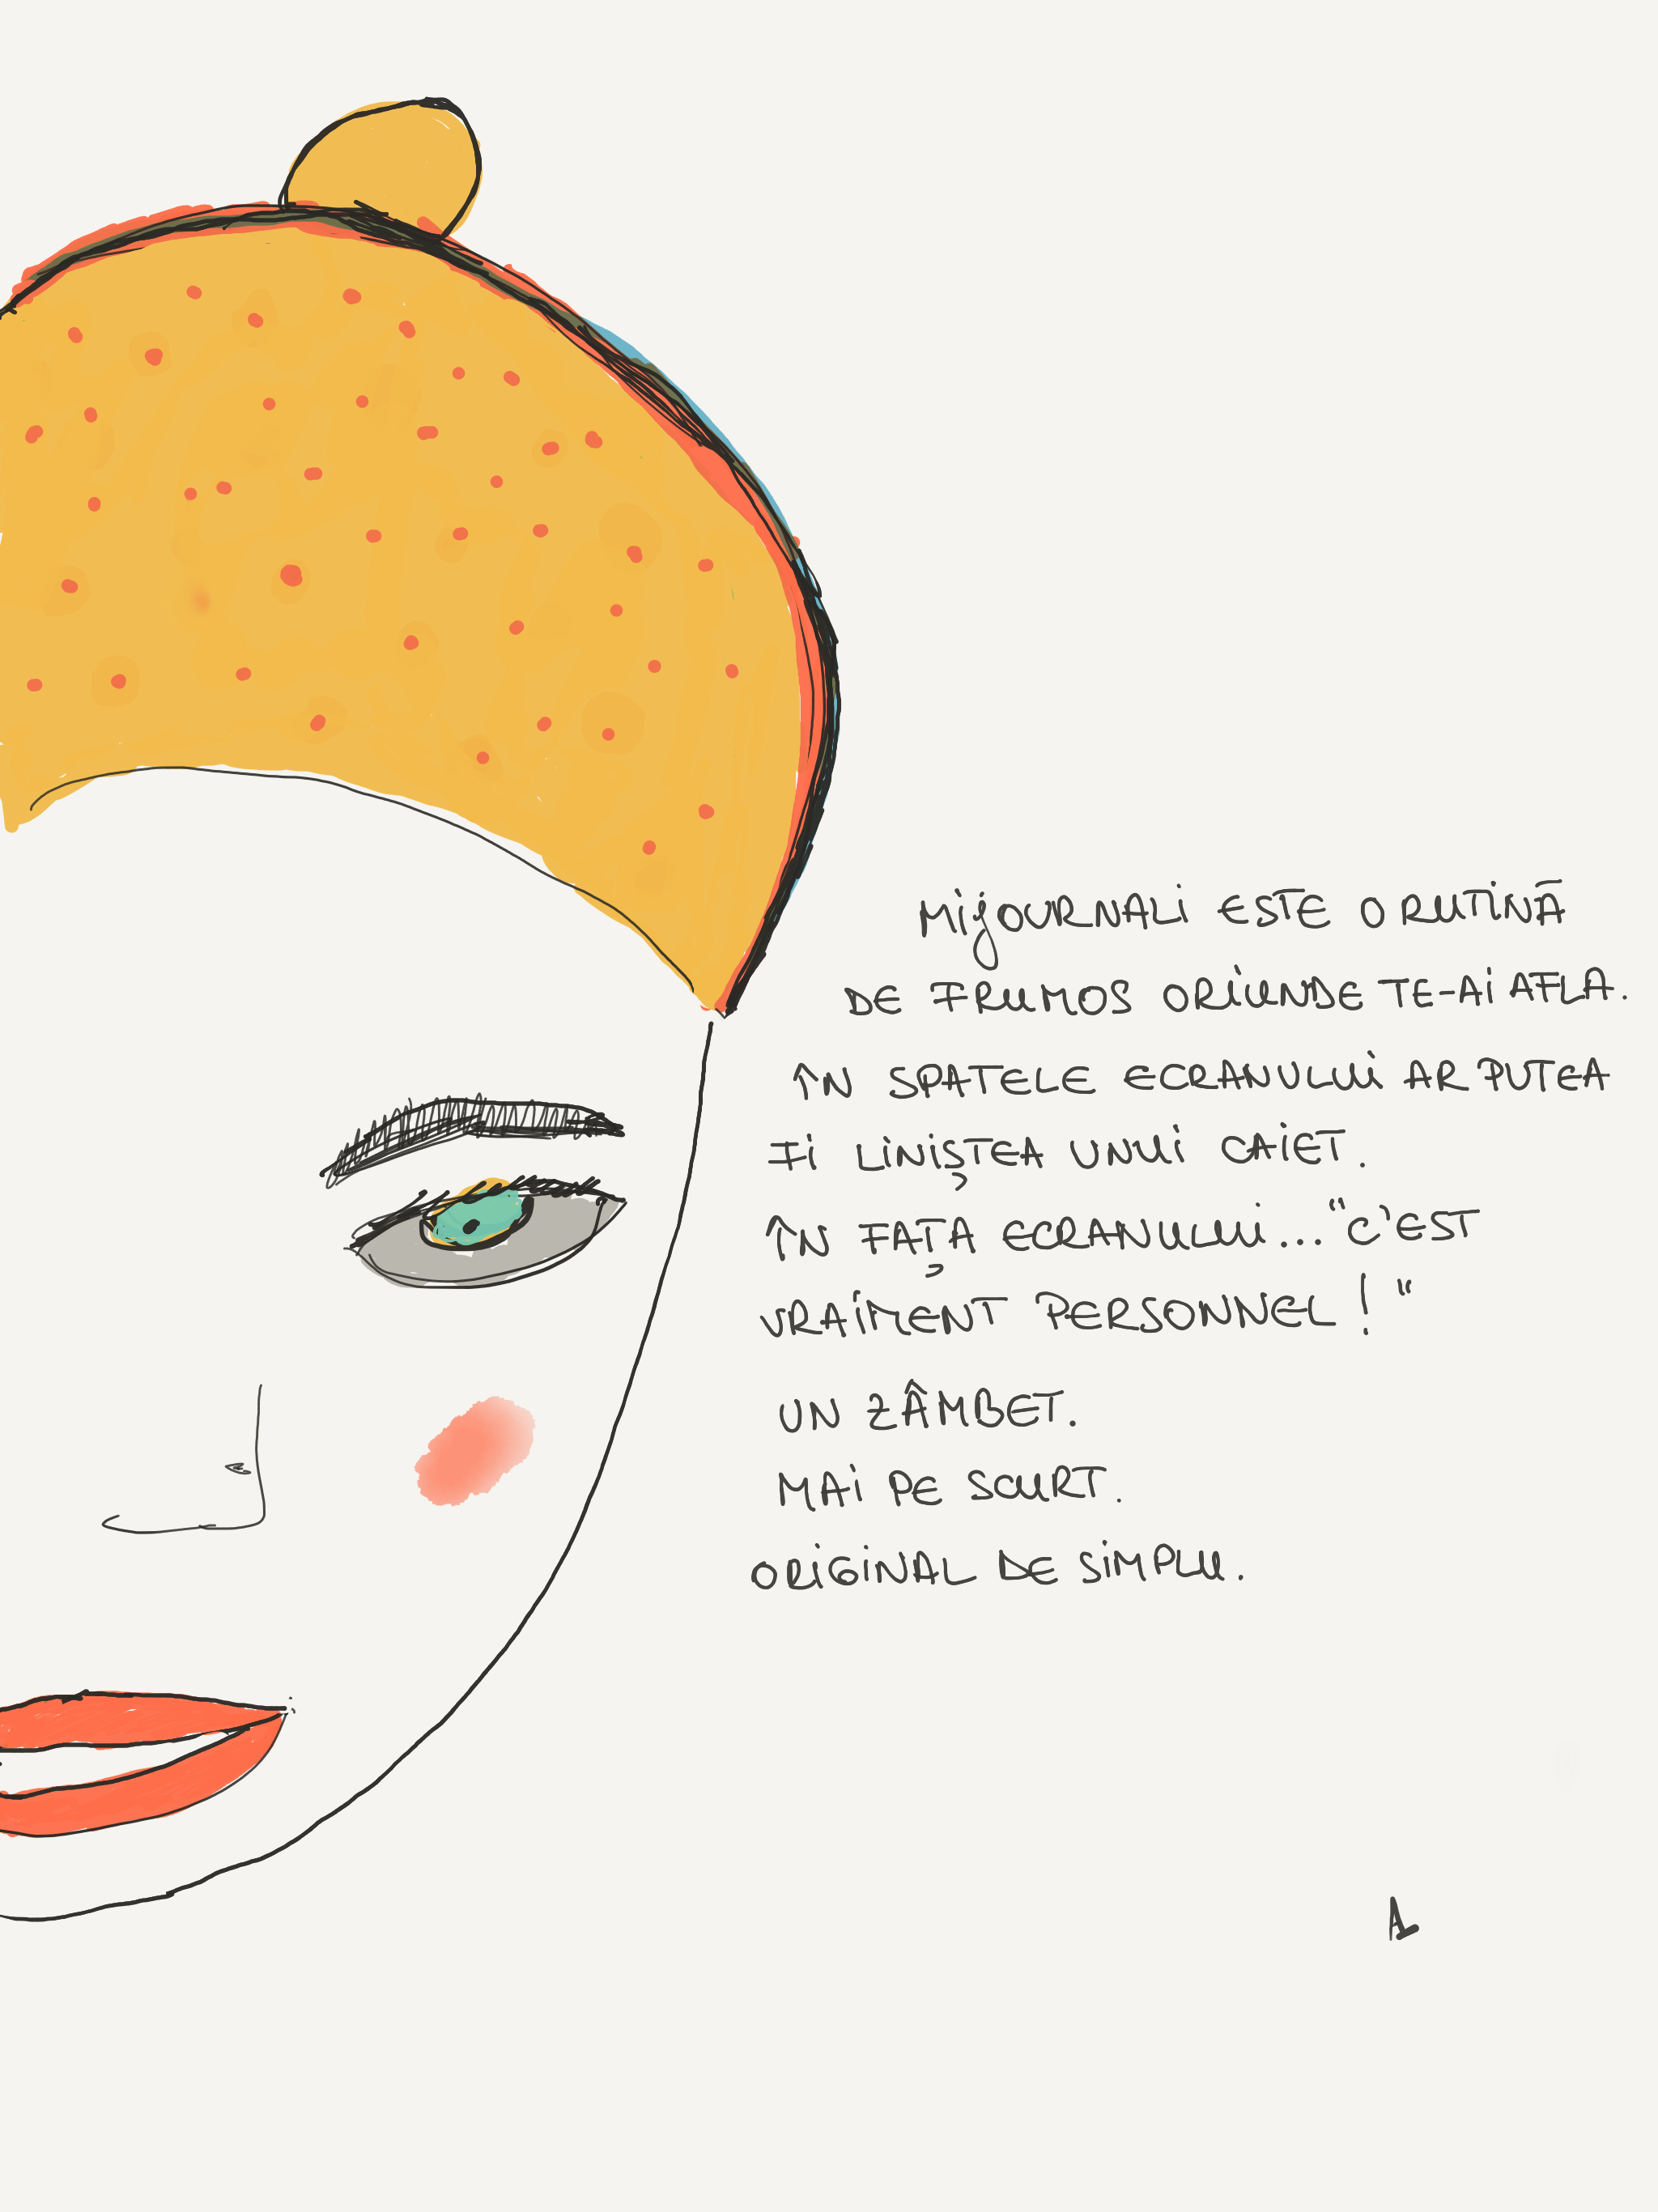 MijOURNALi ESTE O RUTINĂ
DE FRUMOS ORIUNDE TE-AI AFLA.
ÎN SPATELE ECRANULUI AR PUTEA
FI LINIȘTEA UNUI CAIET.
ÎN FAȚA ECRANULUI..."C'EST
VRAIMENT PERSONNEL!"
UN ZÂMBET.
MAI PE SCURT.
ORIGINAL DE SIMPLU.